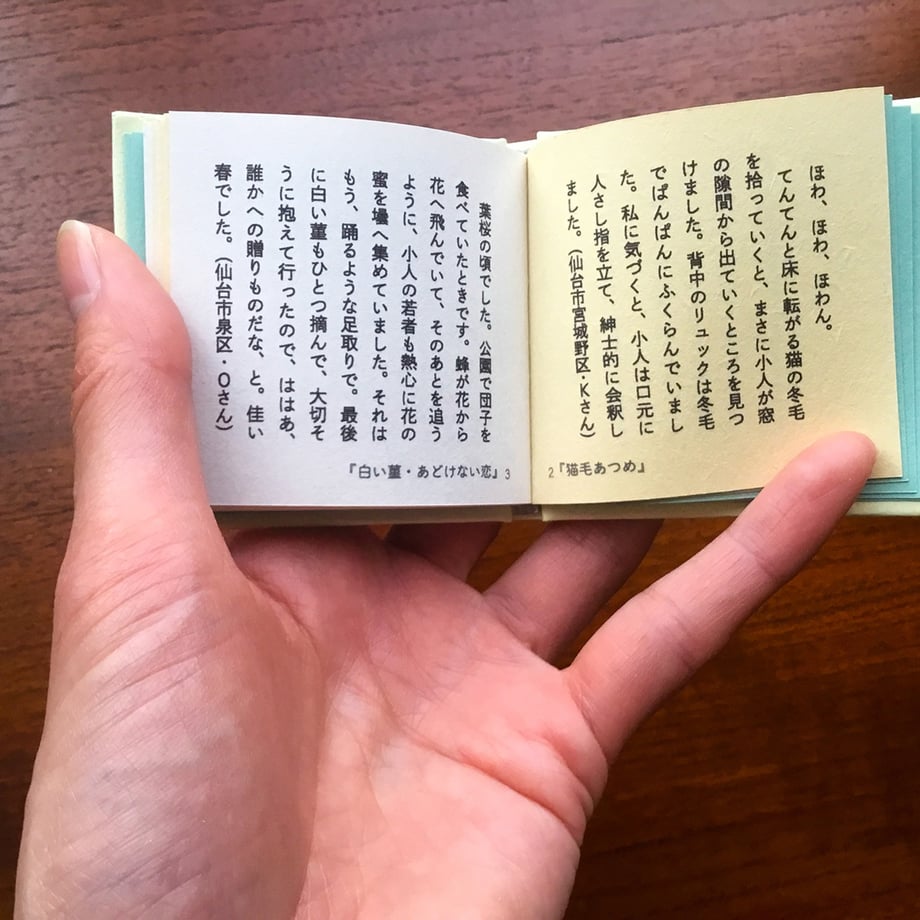 ほわ、ほわ、ほわん。
てんてんと床に転がる猫の冬毛
を拾っていくと、まさに小人が窓
の隙間から出ていくところを見つ
けました。背中のリュックは冬毛
でぱんぱんにふくらんでいまし
た。私に気づくと、小人は口元に
人さし指を立て、紳士的に会釈し
ました。（仙台市宮城野区・Kさん）
2『猫毛あつめ』
葉桜の頃でした。公園で団子を
食べていたときです。蜂が花から
花へ飛んでいて、そのあとを追う
ように、小人の若者も熱心に花の
蜜を壜へ集めていました。それは
もう、踊るような足取りで。最後
に白い菫もひとつ摘んで、大切そ
うに抱えて行ったので、ははあ、
誰かへの贈りものだな、と。佳い
春でした。（仙台市泉区・Oさん）
『白い菫・あどけない恋』3